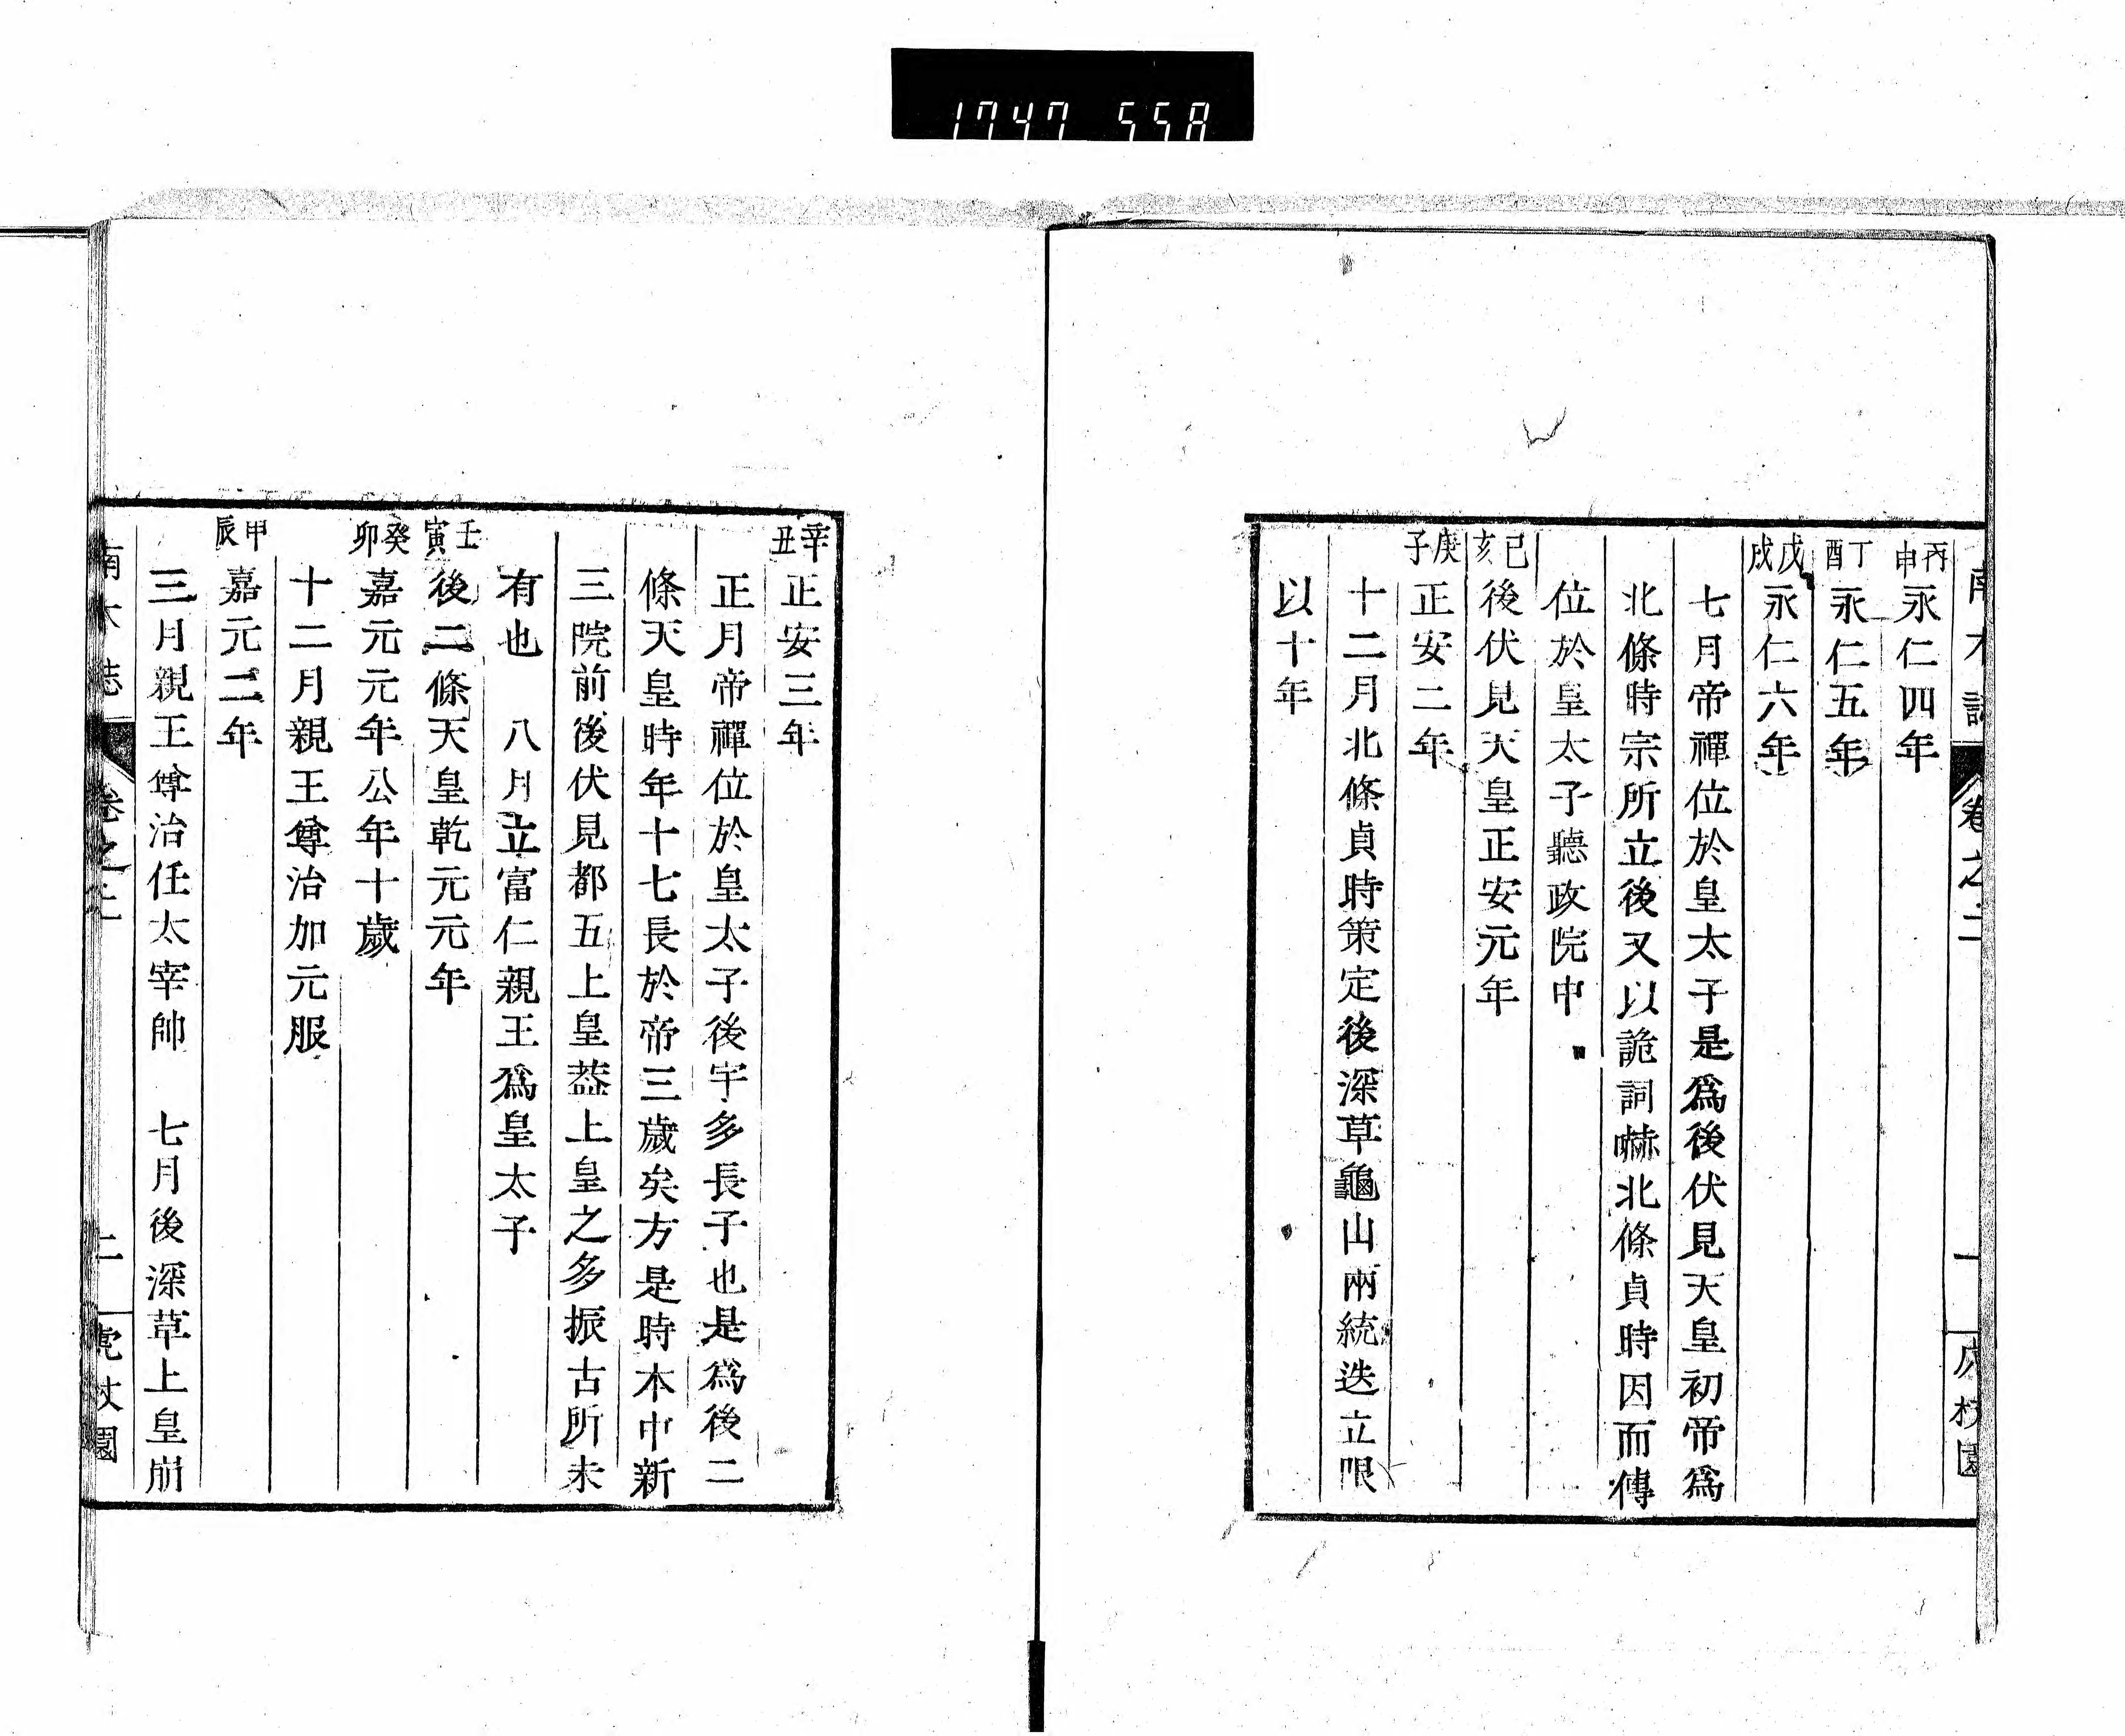 1747 558
南木誌 卷之二 一
丙申 永仁四年
丁酉 永仁五年
戊戌 永仁六年
七月帝禪位於皇太子是爲後伏見天皇初帝爲
北條時宗所立後又以詭詞嚇北條貞時因而傳
位於皇太子聽政院中
己亥 後伏見天皇正安元年
庚子 正安二年
十二月北條貞時策定後深草龜山兩統迭立限
以十年
辛丑 正安三年
正月帝禪位於皇太子後宇多長子也是爲後二
條天皇時年十七長於帝三歲矣方是時本中新
三院前後伏見都五上皇葢上皇之多振古所未
有也 八月立富仁親王爲皇太子
壬寅 後二條天皇乾元元年
癸卯 嘉元元年公年十歲
十二月親王尊治加元服
甲辰 嘉元二年
三月親王尊治任太宰帥 七月後深草上皇崩
南木誌 卷之二 二